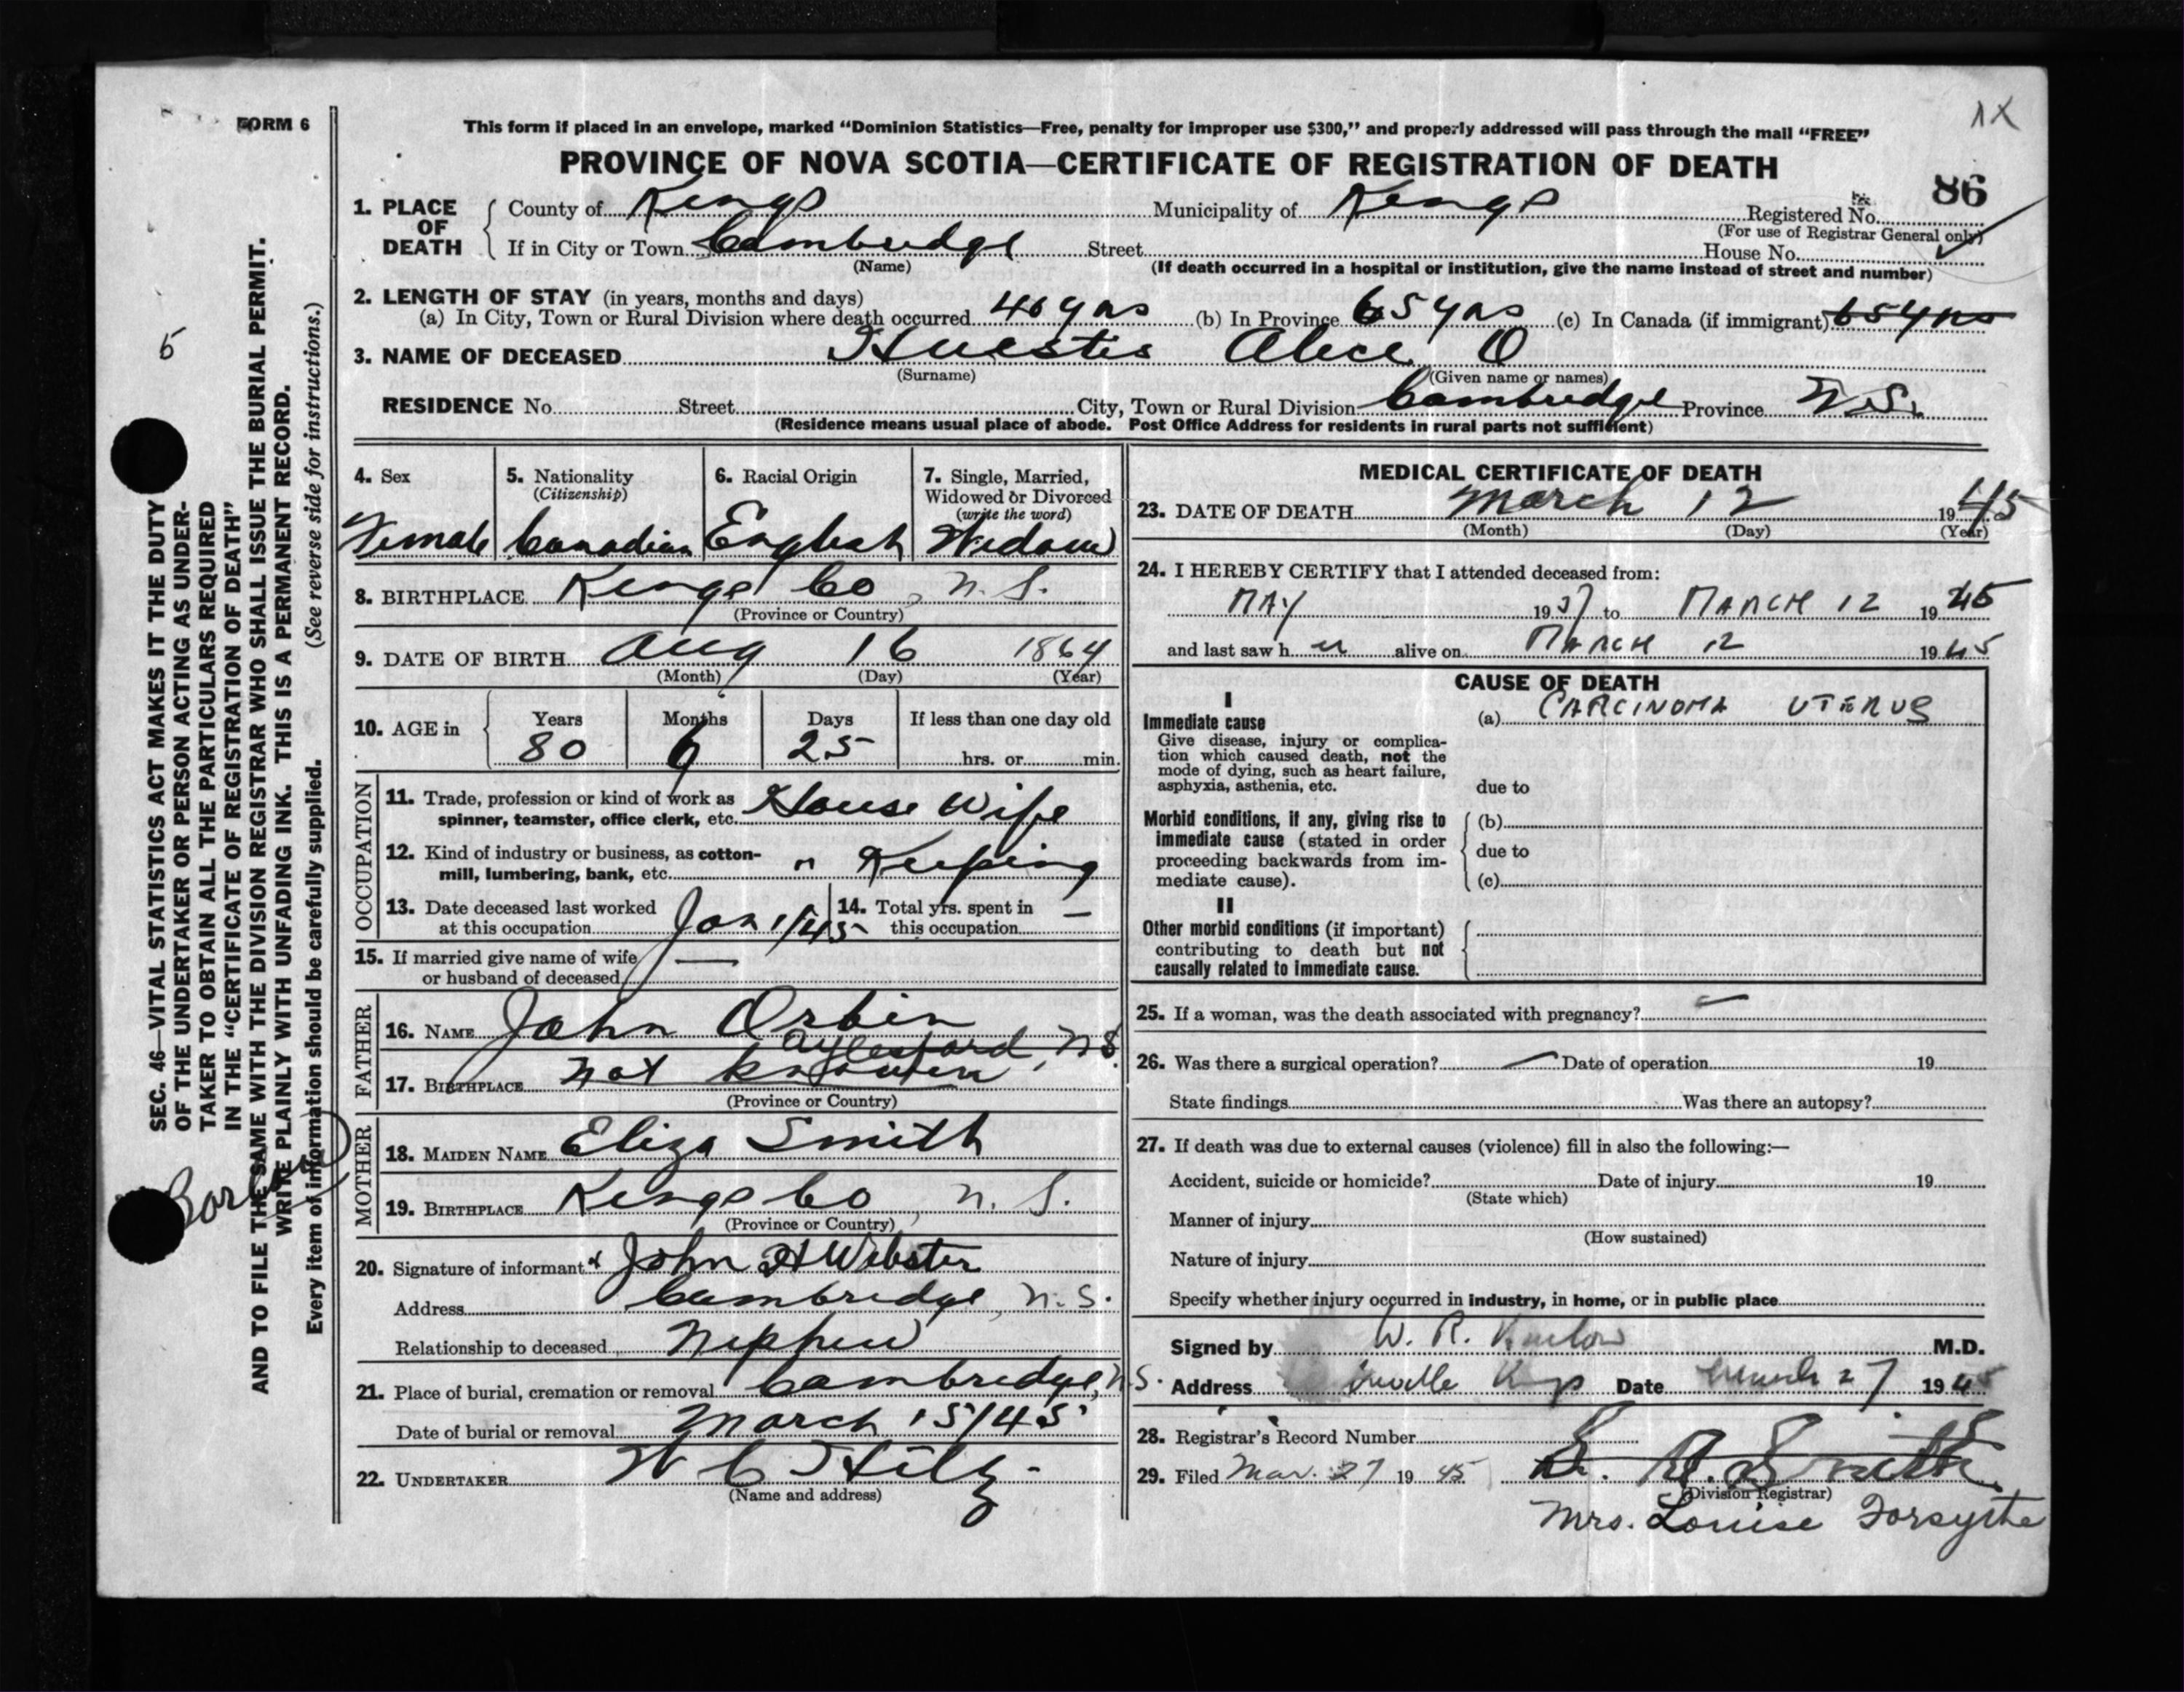 FORM 6
This form if placed in an envelope, marked “Dominion Statistics—Free, penalty for improper use $300,” and properly addressed will pass through the mail “FREE”
PROVINCE OF NOVA SCOTIA—CERTIFICATE OF REGISTRATION OF DEATH
86
1. PLACE OF DEATH { County of Kings Municipality of Kings Registered No.
(For use of Registrar General only)
If in City or Town Cambridge Street House No.
(Name) (If death occurred in a hospital or institution, give the name instead of street and number)
2. LENGTH OF STAY (in years, months and days)
(a) In City, Town or Rural Division where death occurred 40 yrs (b) In Province 65 yrs (c) In Canada (if immigrant) 65 yrs
3. NAME OF DECEASED Huestis Alice O
(Surname) (Given name or names)
RESIDENCE No. Street City, Town or Rural Division Cambridge Province N.S.
(Residence means usual place of abode. Post Office Address for residents in rural parts not sufficient)
4. Sex Female
5. Nationality (Citizenship) Canadian
6. Racial Origin English
7. Single, Married, Widowed or Divorced (write the word) Widow
8. BIRTHPLACE Kings Co, N.S.
(Province or Country)
9. DATE OF BIRTH Aug 16 1864
(Month) (Day) (Year)
10. AGE in { Years 80 Months 6 Days 25 If less than one day old
hrs. or min.
OCCUPATION
11. Trade, profession or kind of work as spinner, teamster, office clerk, etc. House Wife
12. Kind of industry or business, as cotton-mill, lumbering, bank, etc. " Keeping
13. Date deceased last worked at this occupation Jan 1/45
14. Total yrs. spent in this occupation —
15. If married give name of wife or husband of deceased —
FATHER
16. NAME John Orbin
Aylesford, N S
17. BIRTHPLACE not known
(Province or Country)
MOTHER
18. MAIDEN NAME Eliza Smith
19. BIRTHPLACE Kings Co, N. S.
(Province or Country)
20. Signature of informant x John H Webster
Address Cambridge, N.S.
Relationship to deceased Nephew
21. Place of burial, cremation or removal Cambridge, N.S.
Date of burial or removal March 15/45
22. UNDERTAKER W C Hiltz
(Name and address)
MEDICAL CERTIFICATE OF DEATH
23. DATE OF DEATH March 12 1945
(Month) (Day) (Year)
24. I HEREBY CERTIFY that I attended deceased from:
MAY 1937 to MARCH 12 1945
and last saw h er alive on MARCH 12 1945
CAUSE OF DEATH
I
Immediate cause (a) CARCINOMA UTERUS
Give disease, injury or complication which caused death, not the mode of dying, such as heart failure, asphyxia, asthenia, etc.
due to
Morbid conditions, if any, giving rise to immediate cause (stated in order proceeding backwards from immediate cause).
(b)
due to
(c)
II
Other morbid conditions (if important) contributing to death but not causally related to immediate cause.
25. If a woman, was the death associated with pregnancy? —
26. Was there a surgical operation? — Date of operation 19
State findings Was there an autopsy?
27. If death was due to external causes (violence) fill in also the following:—
Accident, suicide or homicide? Date of injury 19
(State which)
Manner of injury
(How sustained)
Nature of injury
Specify whether injury occurred in industry, in home, or in public place
Signed by W. R. M.D.
Address Kings Date March 27 1945
28. Registrar's Record Number
29. Filed Mar. 27 1945 Smith
(Division Registrar)
Mrs. Louise Forsythe
SEC. 46—VITAL STATISTICS ACT MAKES IT THE DUTY
OF THE UNDERTAKER OR PERSON ACTING AS UNDER-
TAKER TO OBTAIN ALL THE PARTICULARS REQUIRED
IN THE “CERTIFICATE OF REGISTRATION OF DEATH”
AND TO FILE THE SAME WITH THE DIVISION REGISTRAR WHO SHALL ISSUE THE BURIAL PERMIT.
WRITE PLAINLY WITH UNFADING INK. THIS IS A PERMANENT RECORD.
Every item of information should be carefully supplied. (See reverse side for instructions.)